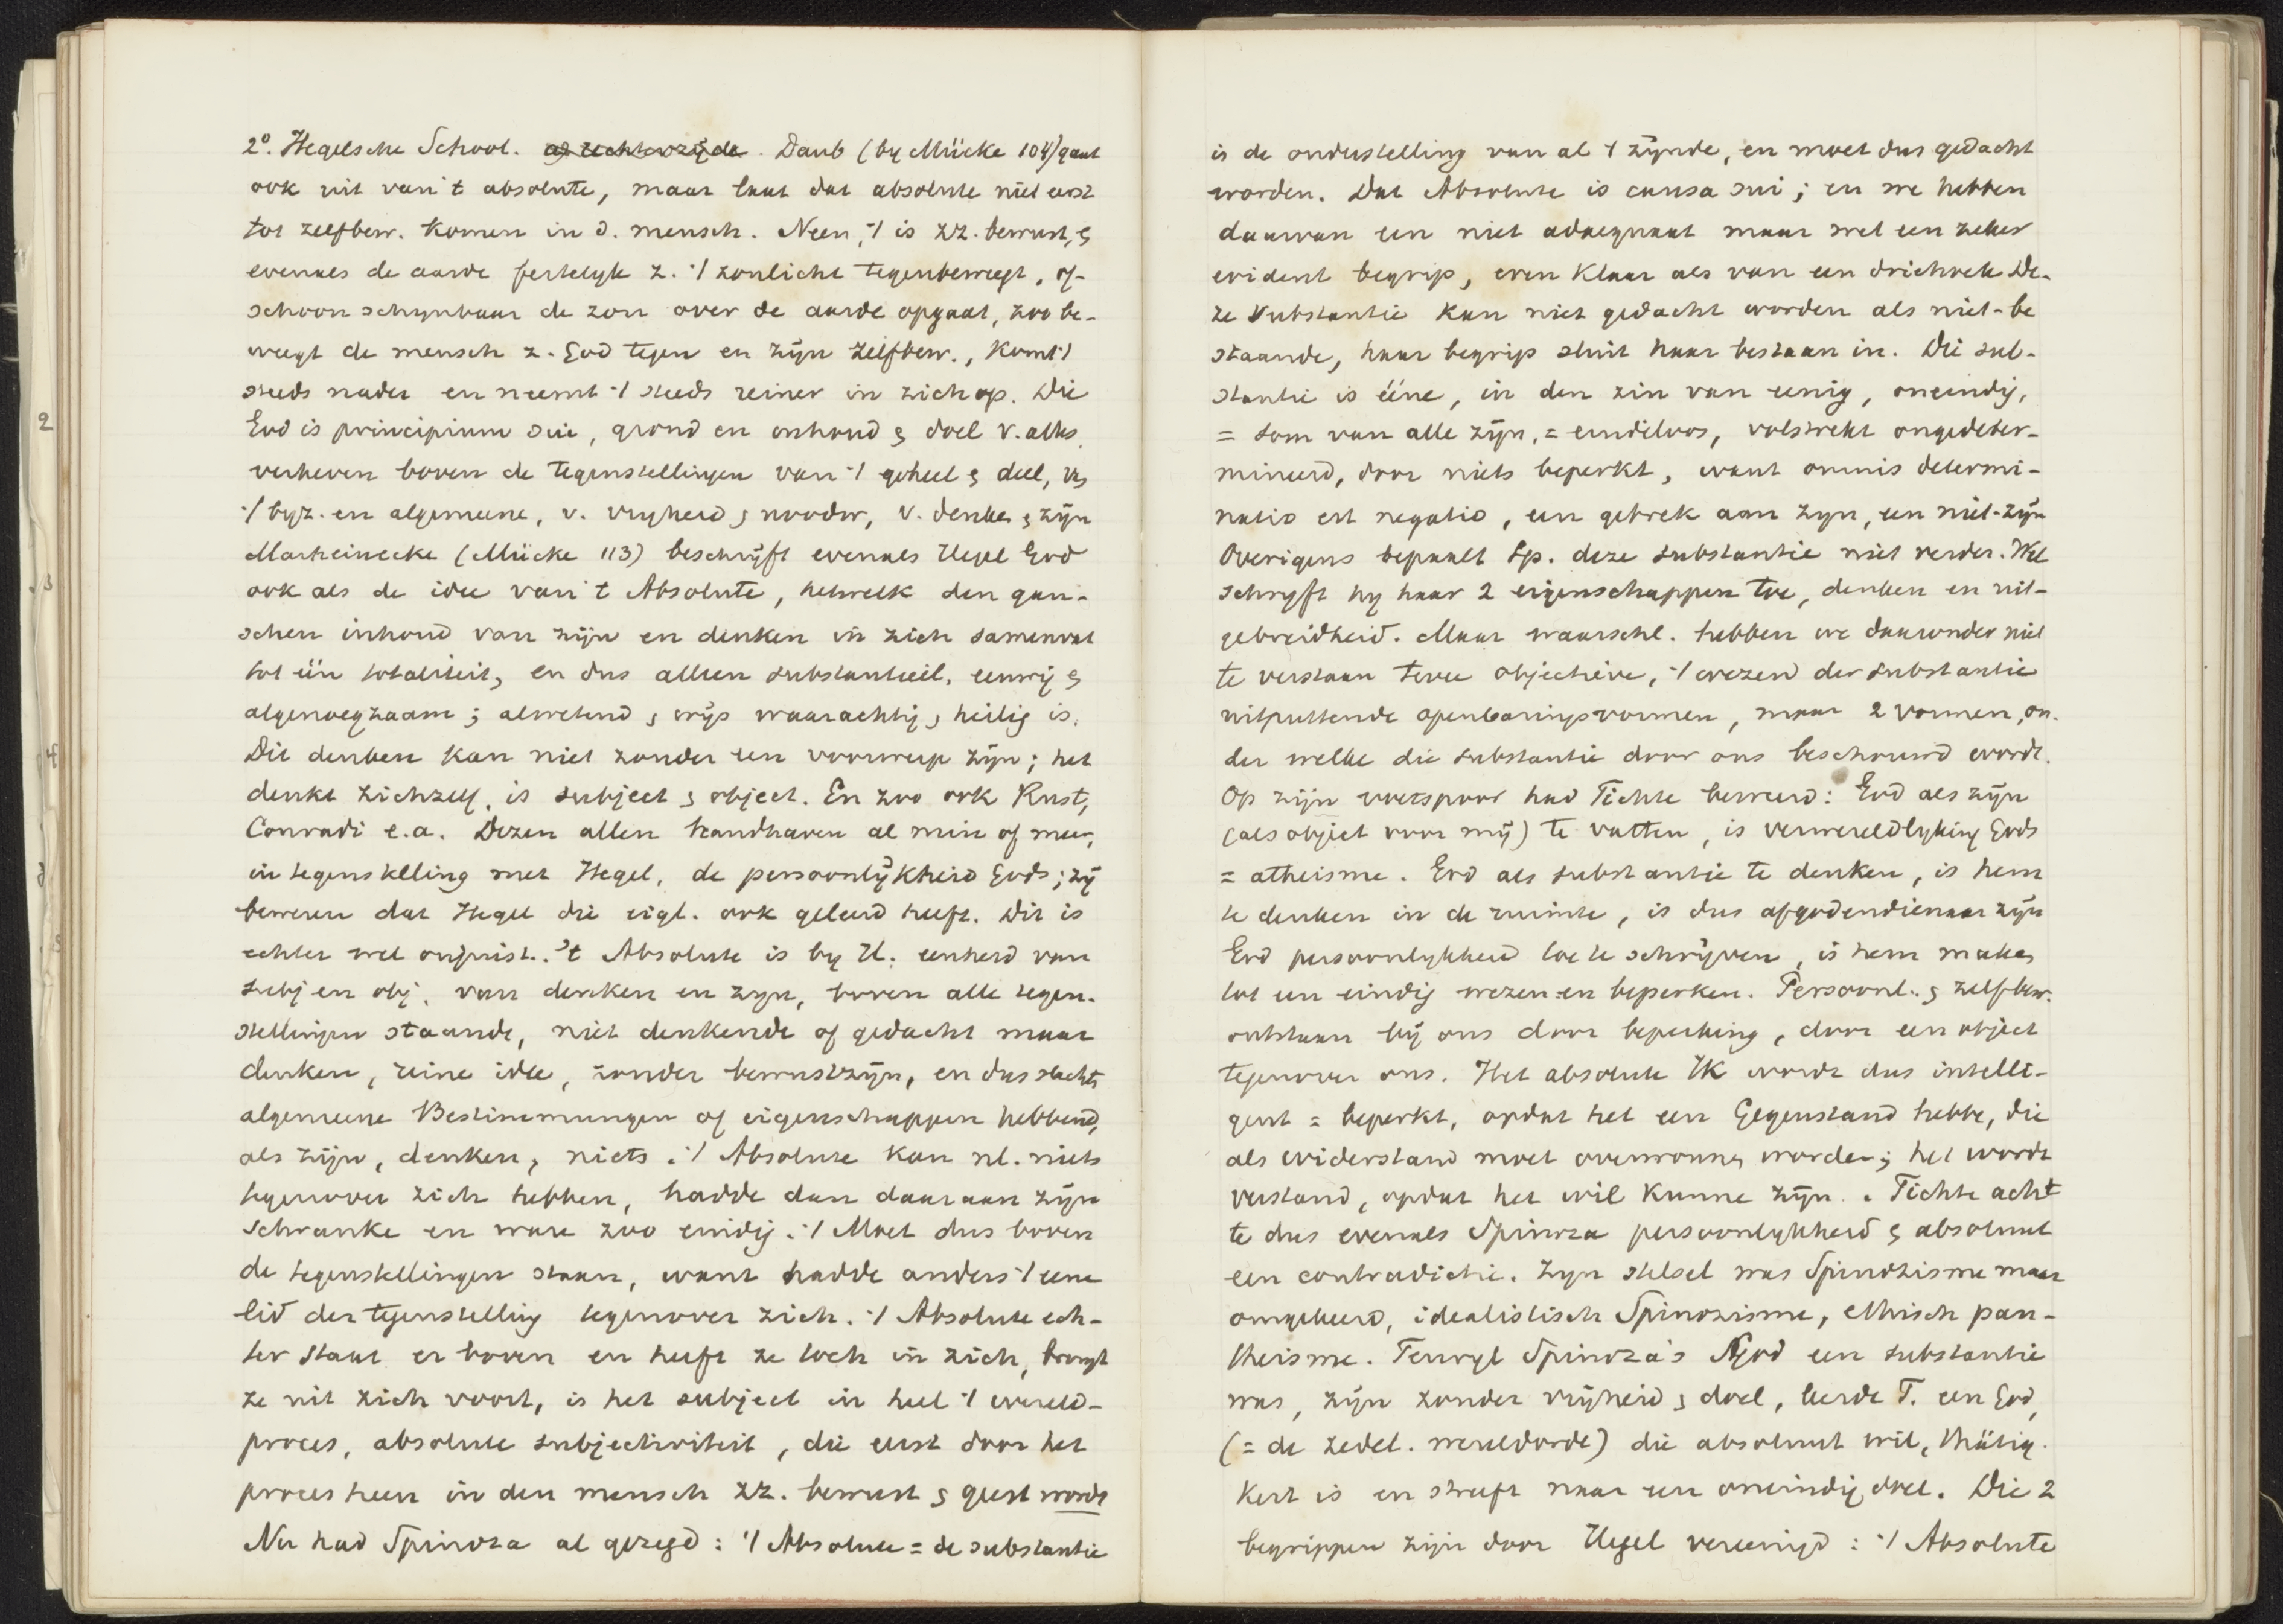 2⁰. Hegelsche School. op rechterzijde. Daub (by Mücke 104) gaat
ook uit van 't absolute, maar laat dat absolute niet eerst
tot zelfbew. komen in d. mensch. Neen, 't is zz. bewust, &
evenals de aarde feitelyk z. 't zonlicht tegenbeweegt, of-
schoon schynbaar de zon over de aarde opgaat, zoo be-
weegt de mensch z. God tegen en zijn zelfbew., komt 't
steeds nader en neemt 't steeds reiner in zich op. Die
God is principium sui, grond en inhoud & doel v. alles,
verheven boven de tegenstellingen van 't geheel & deel, v.
't byz. en algemeene, v. vryheid & noodw, v. denken & zijn
Marheinecke (Mücke 113) beschrijft evenals Hegel God
ook als de idee van 't Absolute, hetwelk den gan-
schen inhoud van zijn en denken in zich samenvat
tot één totaliteit, en dus alleen substantieel, eeuwig &
algenoegzaam; alwetend & wijs waarachtig & heilig is.
Dit denken kan niet zonder een voorwerp zijn; het
denkt zichzelf, is subject & object. En zoo ook Rust,
Conradi e.a. Dezen allen handhaven al min of meer,
in tegenstelling met Hegel, de persoonlijkheid Gods; zij
beweren dat Hegel die eigl. ook geleerd heeft. Dit is
echter wel onjuist. 't Absolute is by H. eenheid van
subj en obj. van denken en zyn, boven alle tegen-
stellingen staande, niet denkende of gedacht maar
denken, reine idee, zonder bewustzijn, en dus slechts
algemeene Bestimmungen of eigenschappen hebbend,
als zijn, denken, niets. 't Absolute kan nl. niets
tegenover zich hebben, hadde dan daaraan zijn
Schranke en ware zoo eindig. 't Moet dus boven
de tegenstellingen staan, want hadde anders 't eene
lid der tegenstelling tegenover zich. 't Absolute ech-
ter staat er boven en heeft ze toch in zich, brengt
ze uit zich voort, is het subject in heel 't wereld-
proces, absolute subjectiviteit, die eerst door het
proces heen in den mensch zz. bewust & geest wordt
Nu had Spinoza al gezegd: 't Absolute = de substantie
is de onderstelling van al 't zijnde, en moet dus gedacht
worden. Dat Absolute is causa sui; en we hebben
daarvan een niet adaequaat maar wel een zeker
evident begrip, even klaar als van een driehoek De-
ze substantie kan niet gedacht worden als niet-be
staande, haar begrip sluit haar bestaan in. Die sub-
stantie is ééne, in den zin van eenig, oneindig,
= som van alle zijn, = eindeloos, volstrekt ongedeter-
mineerd, door niets beperkt, want omnis determi-
natio est negatio, een gebrek aan zyn, een niet-zijn
Overigens bepaalt Sp. deze substantie niet verder. Wel
schryft hy haar 2 eigenschappen toe, denken en uit-
gebreidheid. Maar waarschl. hebben we daaronder niet
te verstaan twee objectieve, 't wezen der substantie
uitputtende openbaringsvormen, maar 2 vormen, on-
der welke die substantie door ons beschouwd wordt.
Op zijn voetspoor had Fichte beweerd: God als zijn
(als object voor mij) te vatten, is verwereldlyking Gods
= atheisme. God als substantie te denken, is hem
te denken in de ruimte, is dus afgodendienaar zijn
God persoonlykheid toe te schrijven, is hem maken
tot een eindig wezen en beperken. Persoonl. & zelfbew.
ontstaan bij ons door beperking, door een object
tegenover ons. Het absolute Ik wordt dus intelli-
gent = beperkt, opdat het een Gegenstand hebbe, die
als widerstand moet overwonnen worden; het wordt
verstand, opdat het wil kunne zijn. Fichte acht
te dus evenals Spinoza persoonlykheid & absoluut
een contradictie. Zyn stelsel was Spinozisme maar
omgekeerd, idealistisch Spinozisme, ethisch pan-
theisme. Terwyl Spinoza's God een substantie
was, zijn zonder vrijheid & doel, leerde F. een God,
(= de zedel. wereldorde) die absoluut wil, thätig-
keit is en streeft naar een oneindig doel. Die 2
begrippen zijn door Hegel vereenigd: 't Absolute